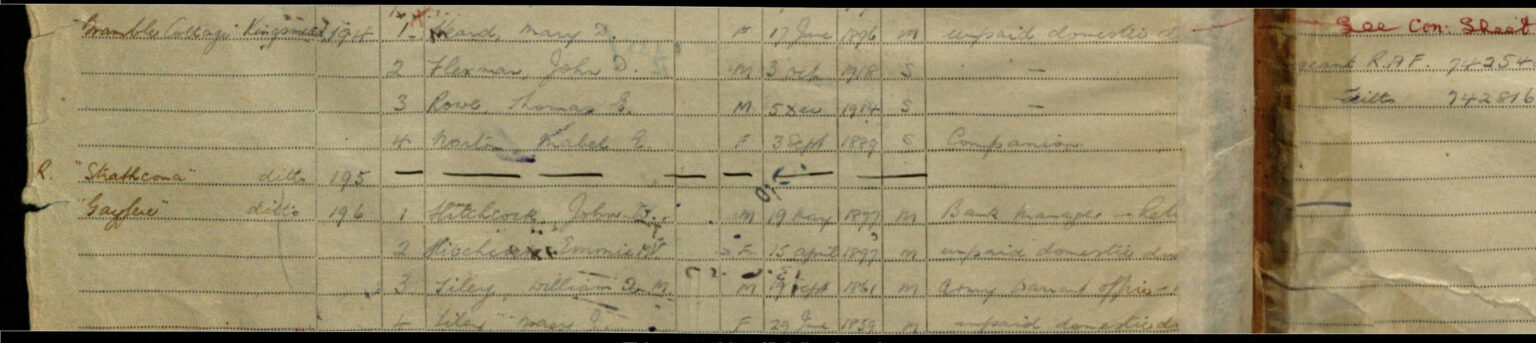 Bramble Cottage Kingsmead 194 1 Heard, Mary D. F 17 June 1896 M unpaid domestic d See Con. Sheet
2 Flexman, John D. M 3 Oct 1918 S — R.A.F. 74254
3 Rowe, Thomas E. M 5 Dec 1914 S — ditto 742816
4 Norton, Mabel E. F 3 Sept 1889 S Companion
R. "Strathcona" ditto 195 — — — — — — —
"Gayfere" ditto 196 1 Hitchcock, John M 19 May 1877 M Bank Manager - Ret
2 Hitchcock Emmie F 15 April 1897 M unpaid domestic du
3 Tiley, William M. M Sept 1861 M Army Warrant Officer
4 Tiley Mary J. F 29 June 1859 M unpaid domestic d